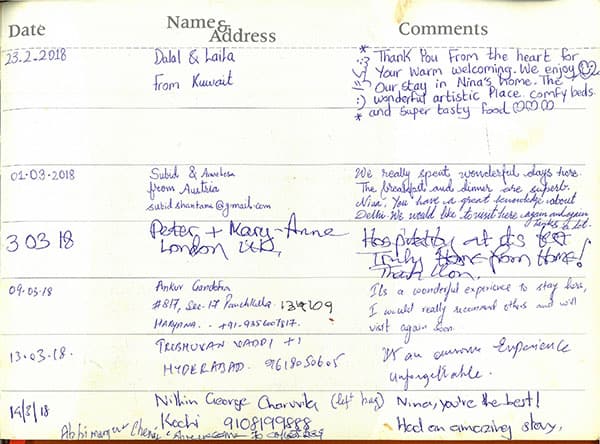 Date
Name & Address
Comments
23.2.2018
Dalal & Laila
From Kuwait
* Thank You From the heart for
Your Warm welcoming. We enjoy
Our stay in Nina's home. The
wonderful artistic Place. comfy beds.
* and super tasty food
شكراً :)
01-03-2018
Subid &
from Austria
We really spent wonderful days here.
The breakfast and dinner are superb.
Nina, You have a great knowledge about
Delhi. We would like to visit here again and again
Thanks a lot.
3 03 18
Peter + Mary-Anne
London U.K,
Hospitality at its best
Truly Home from Home!
Thank You.
09.03.18
Ankur
#817, Sec-17 Panchkula 134109
Haryana.
It's a wonderful experience to stay here,
I would really recommend others and will
visit again soon.
13.03.18.
TRIBHUVAN
HYDERABAD. 9618050605
It's an awesome Experience
Unforgettable.
14/3/18
Nithin George (left bag)
Kochi 9108199888
Nina, you're the best!
Had an amazing stay,